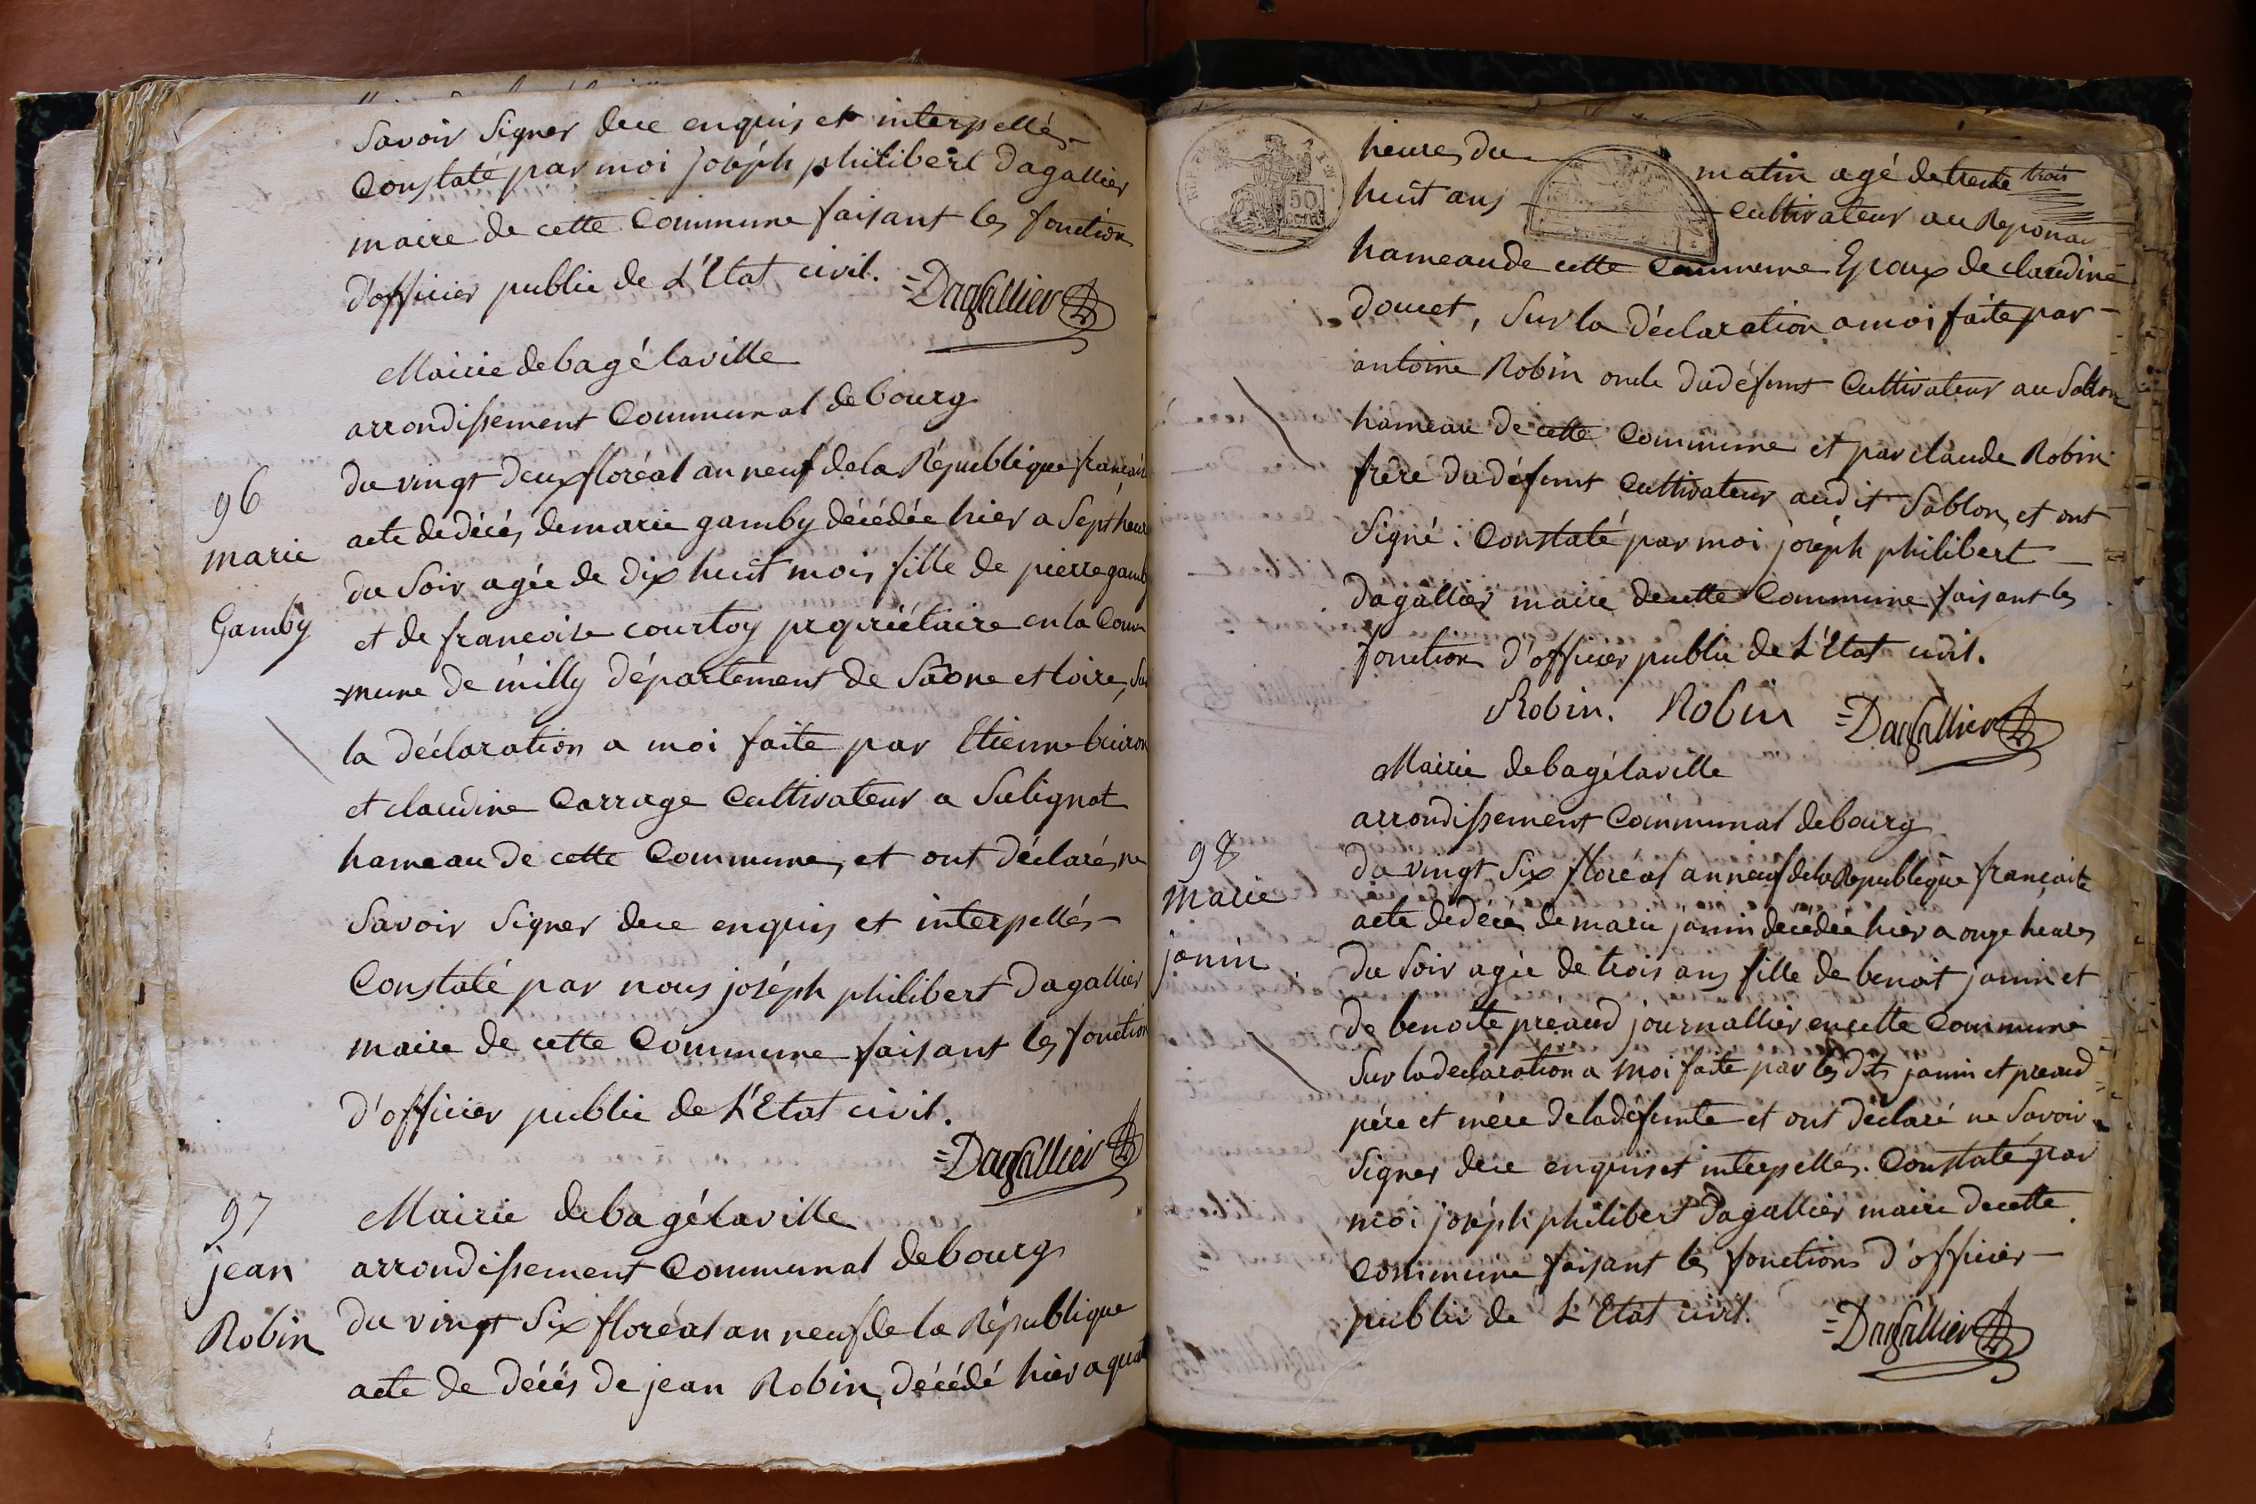 Savoir Signer dece enquis et interpellés
Constaté par moi joséph philibert Dagallier
maire de cette Commune faisant les fonction
D'officier public de L'Etat civil. =Dagallier
Mairie debagélaville
arrondissement Communal debourg
96
marie
Gamby
du vingt deux floréal an neuf de la République francais
acte dedécés demarie gamby décédée hier a Sept heure
du Soir agée de dix huit mois fille de pierre gamb
et de francoise courtoy propriétaire en la Com
=mune de milly département de Saone et loire, Su
la déclaration a moi faite par Etienne buiron
et claudine Carrage Cultivateur a Sulignat
hameau de cette Commune, et ont déclarés ne
Savoir Signer dece enquis et interpellés
Constaté par nous joséph philibert Dagallier
maire de cette Commune faisant les fonction
d'officier public de L'Etat civil.
=Dagallier
97
jean
Robin
Mairie debagélaville
arrondissement Communal debourg
du vingt Six floréal an neuf de la République
acte de décés de jean Robin, décédé hier a quat
heures du matin agé detrente trois
huit ans cultivateur au
hameau de cette Commune Epoux de claudine
doucet, Sur la déclaration a moi faite par
antoine Robin oncle dudéfunt Cultivateur au Sablon
hameau de cette Commune et par claude Robin
frére dudéfunt Cultivateur audit Sablon, et ont
Signé. Constaté par moi joséph philibert
Dagallier maire decette Commune faisant les
fonction d'officier public de L'Etat civil.
Robin. Robin =Dagallier
Mairie debagélaville
arrondissement Communal debourg
98
marie
janin
du vingt Six floréal an neuf dela Republique francaise
acte dedécés de marie janin decédée hier a onze heures
du Soir agée de trois ans fille de benoit janin et
de benoite préaud journallier encette Commune
Sur ladeclaration a moi faite par les dits janin et preaud
pére et mére deladéfunte et ont déclaré ne Savoir
Signer dece enquis et interpellés. Constaté par
moi joséph philibert Dagallier maire decette
Commune faisant les fonctions d'officier
public de L'Etat civil. =Dagallier